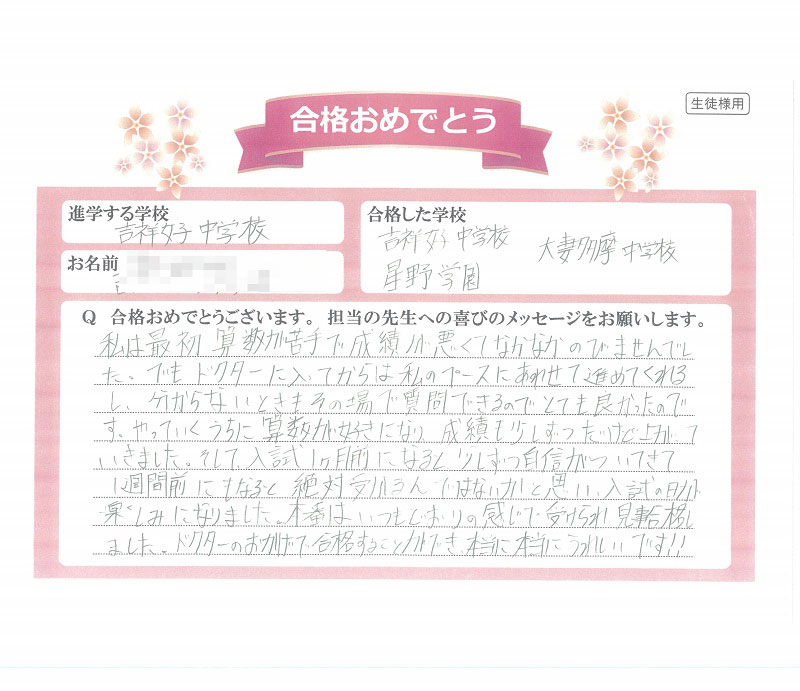 合格おめでとう
生徒様用
進学する学校
吉祥女子中学校
合格した学校
吉祥女子中学校 大妻多摩中学校
星野学園
お名前
Q 合格おめでとうございます。担当の先生への喜びのメッセージをお願いします。
私は最初算数が苦手で成績が悪くてなかなかのびませんでし
た。でもドクターに入ってからは私のペースにあわせて進めてくれる
し、分からないときもその場で質問できるのでとても良かったので
す。やっていくうちに算数が好きになり、成績も少しずつだけど上がって
いきました。そして、入試1ヶ月前になると少しずつ自信がついてきて
1週間前にもなると絶対受かるんではないかと思い、入試の日が
楽しみになりました。本番はいつもどおりの感じで受けられ見事合格し
ました。ドクターのおかげで合格することができ、本当に本当にうれしいです!!